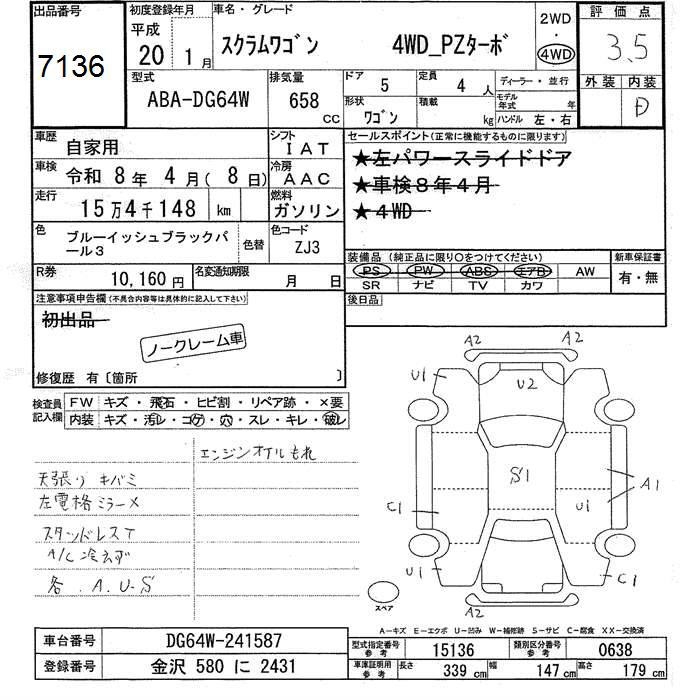 出品番号
7136
初度登録年月
平成
20 1 月
車名・グレード
スクラムワゴン 4WD_PZターボ
2WD
・
4WD
評価点
3.5
外装 内装
D
型式
ABA-DG64W
排気量
658
CC
ドア
5
定員
4 人
形状
ワゴン
積載
kg
ディーラー・並行
モデル年式 年
ハンドル 左・右
車歴
自家用
シフト
IAT
車検
令和 8年 4月( 8日)
冷房
AAC
走行
15万4千148 km
燃料
ガソリン
色
ブルーイッシュブラックパール3
色替
色コード
ZJ3
R券
10,160円
名変通知期限
月 日
セールスポイント(正常に機能するものに限ります)
★左パワースライドドア
★車検8年4月
★4WD
装備品(純正品に限り○をつけてください)
PS PW ABS エアB AW
SR ナビ TV カワ
新車保証書
有・無
後日品
注意事項申告欄(不具合内容等は具体的に記入して下さい)
初出品
ノークレーム車
修復歴 有〔箇所 〕
検査員記入欄
FW キズ・飛石・ヒビ割・リペア跡・×要
内装 キズ・汚レ・コゲ・穴・スレ・キレ・破レ
エンジンオイルもれ
天張り キバミ
左電格ミラー×
スタッドレスT
A/C 冷えず
各.A.U.S
A2
A2
U1
U2
S1
A1
U1
C1
U1
C1
A2
スペア
A-キズ E-エクボ U-凹み W-補修跡 S-サビ C-腐食 XX-交換済
車台番号
DG64W-241587
登録番号
金沢 580 に 2431
型式指定番号
参考
15136
類別区分番号
参考
0638
車庫証明用
参考
長さ 339 cm 幅 147 cm 高さ 179 cm